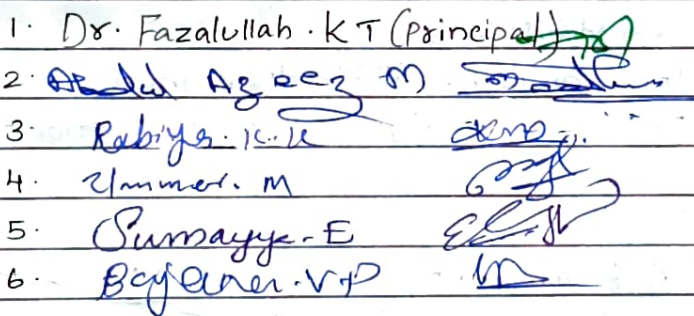 1. Dr. Fazalullah. KT (Principal)
2. Abdul Azeez M
3. Rabiya. K.K
4. Ummer. M
5. Sumayya. E
6. V.P